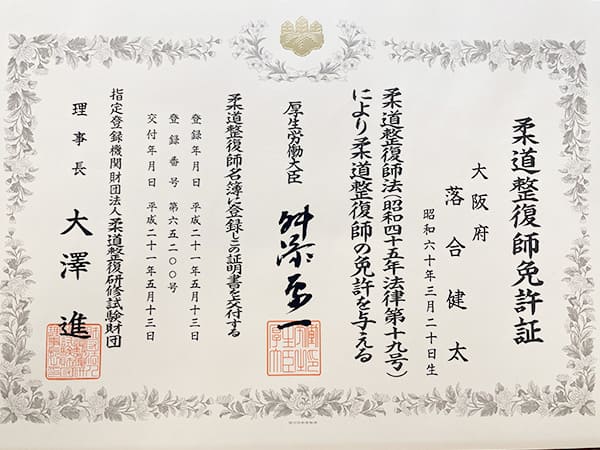 柔道整復師免許証
大阪府
落合健太
昭和六十年三月二十日生
柔道整復師法(昭和四十五年法律第十九号)
により柔道整復師の免許を与える
厚生労働大臣 舛添要一
柔道整復師名簿に登録しこの証明書を交付する
登録年月日 平成二十一年五月十三日
登録番号 第六五二〇〇号
交付年月日 平成二十一年五月十三日
指定登録機関財団法人柔道整復研修試験財団
理事長 大澤進